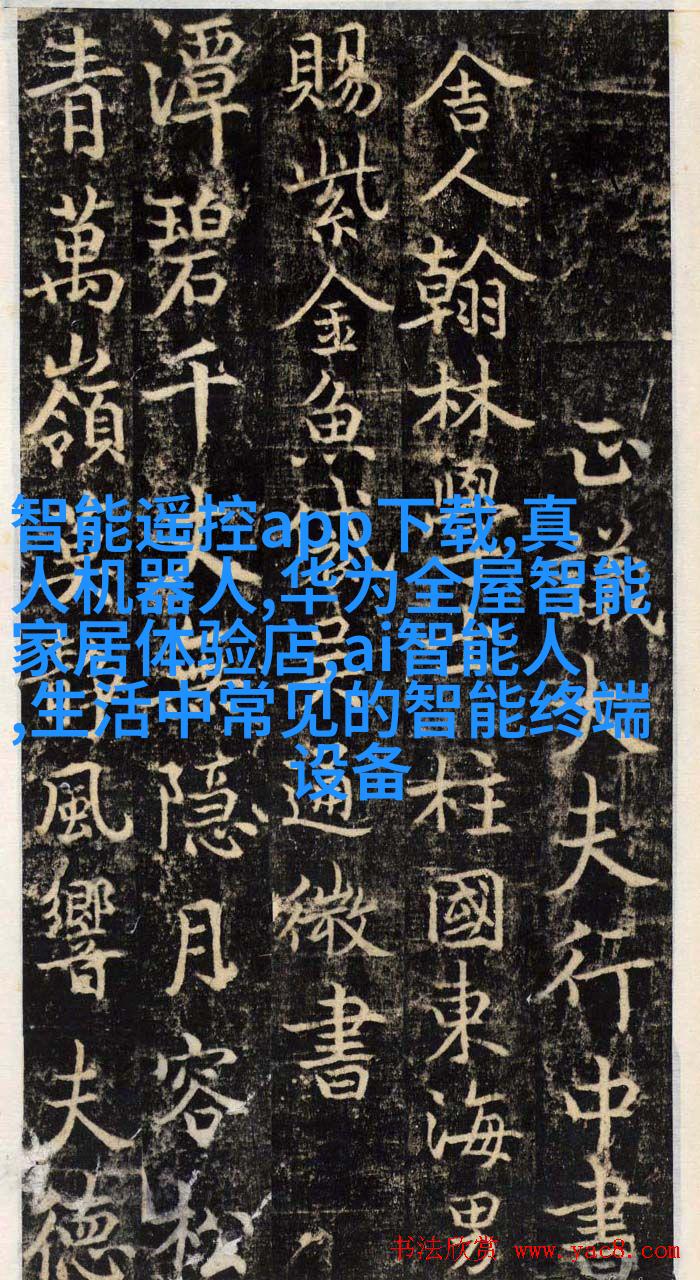 正議大夫行中書
舍人翰林學柱國東海男
賜紫金魚袋吴通微書
潭碧千隐月容松
青萬嶺風響夫德
智能遥控app下载,真
人机器人,华为全屋智能
家居体验店,ai智能人
,生活中常见的智能终端
设备
书法欣赏 www.yac8.com